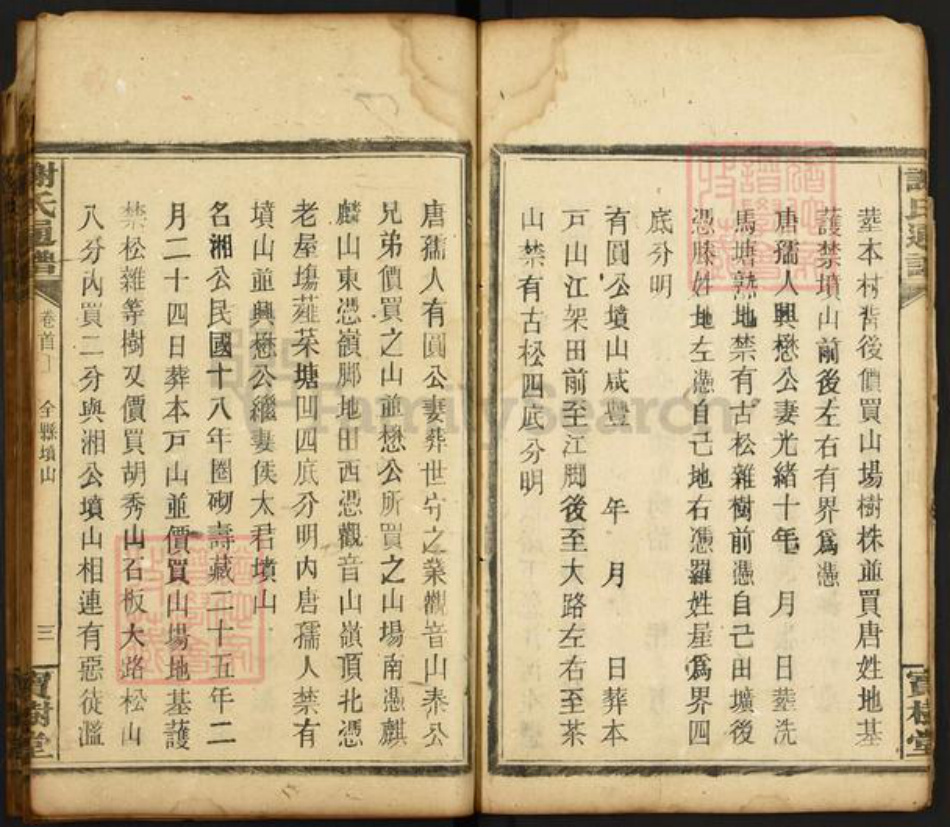 塟本村背後價買山塲樹株並買唐姓地基
護禁墳山前後左右有界爲憑
唐孺人興懋公妻光緒十年 月 日塟洗
馬塘熟地禁有古松雜樹前憑自己田壙後
憑滕姓地左憑自己地右憑羅姓屋爲界四
底分明
有圓公墳山咸豐 年 月 日葬本
戸山江架田前至江脚後至大路左右至茶
山禁有古松四底分明
唐孺人有圓公妻葬世守之業觀音山泰公
兄弟價買之山並懋公所買之山場南憑麒
麟山東憑嶺脚地田西憑觀音山嶺頂北憑
老屋塲蕹菜塘凹四底分明內唐孺人禁有
墳山並興懋公繼妻侯太君墳山
名湘公民國十八年圈砌壽藏二十五年二
月二十四日葬本戸山並價買山場地基護
禁松雜等樹又價買胡秀山石板大路松山
八分內買二分與湘公墳山相連有惡徒濫
謝氏通譜
卷首
全縣墳山
三
寶樹堂
FamilySearch